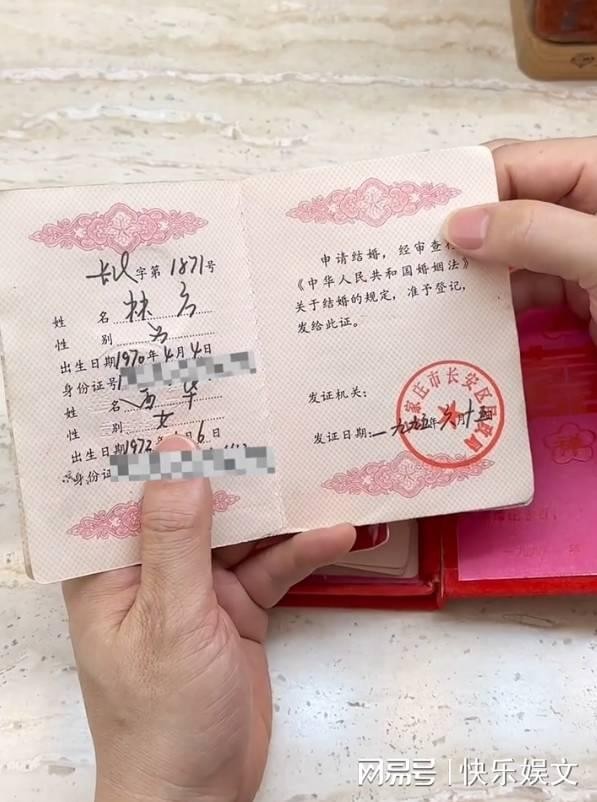 长民字第1871号
姓 名 林
性 别 男
出生日期1970年4月4日
身份证号1
姓 名 华
性 别 女
出生日期1972年 月6日
身份证
申请结婚，经审查符
《中华人民共和国婚姻法》
关于结婚的规定，准予登记，
发给此证。
发证机关：
家庄市长安区民政局
发证日期：一九九五年六月十五
网易号 | 快乐娱文